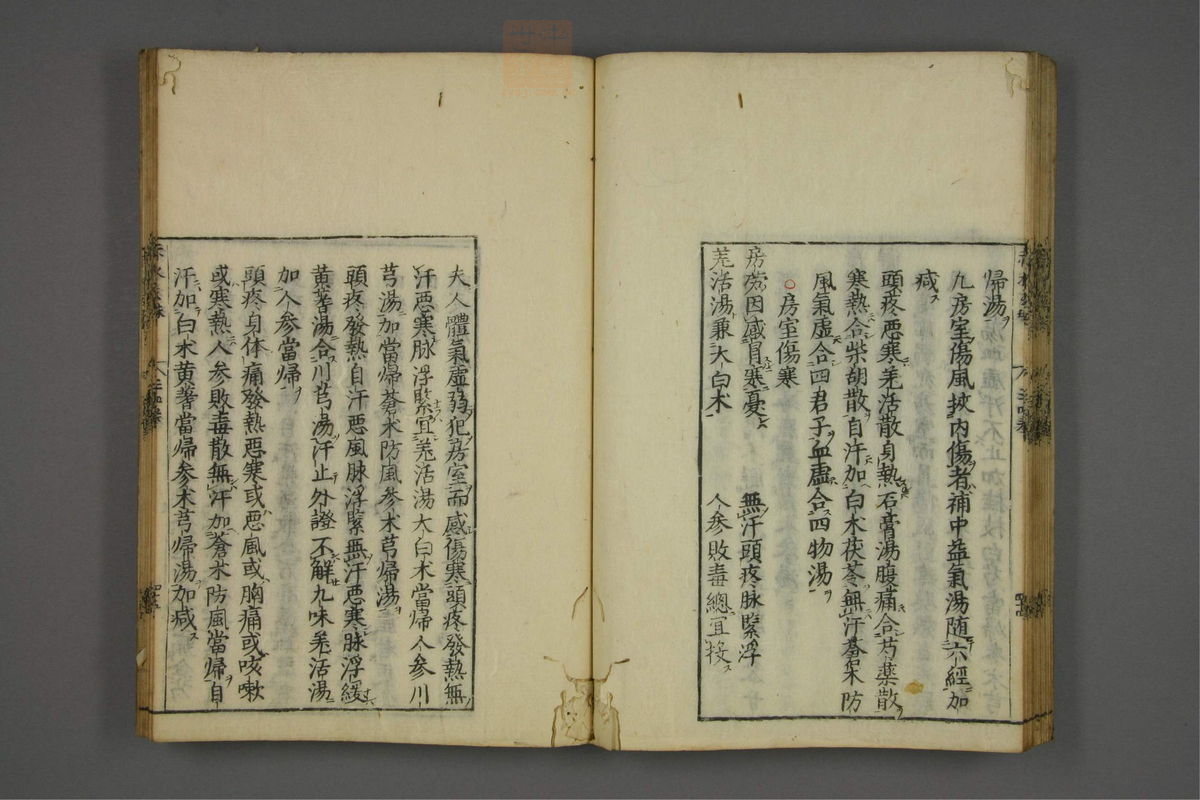 帰湯ヲ
凡房室傷風挾内傷者補中益氣湯随六經加
減ス
頭疼惡寒羌活散身熱石膏湯腹痛合芍藥散
寒熱合柴胡散自汗加白朮茯苓無汗蒼朮防
風氣虚合四君子血虚合四物湯
○房室傷寒
房勞因感冒寒憂 無汗頭疼脉緊浮
羌活湯兼大白朮 人参敗毒總宜投
夫人體氣虚弱犯房室而感傷寒頭疼發熱無
汗惡寒脉浮緊宜羌活湯大白朮當帰人参川
芎湯加當帰蒼朮防風参朮芎帰湯
頭疼發熱自汗惡風脉浮緊無汗惡寒脉浮緩
黄蓍湯合川芎湯汗止外證不解九味羌活湯
加人参當帰
頭疼身体痛發熱惡寒或惡風或胸痛或咳嗽
或寒熱人参敗毒散無汗加蒼朮防風當帰自
汗加白朮黄蓍當帰参朮芎帰湯加減ス